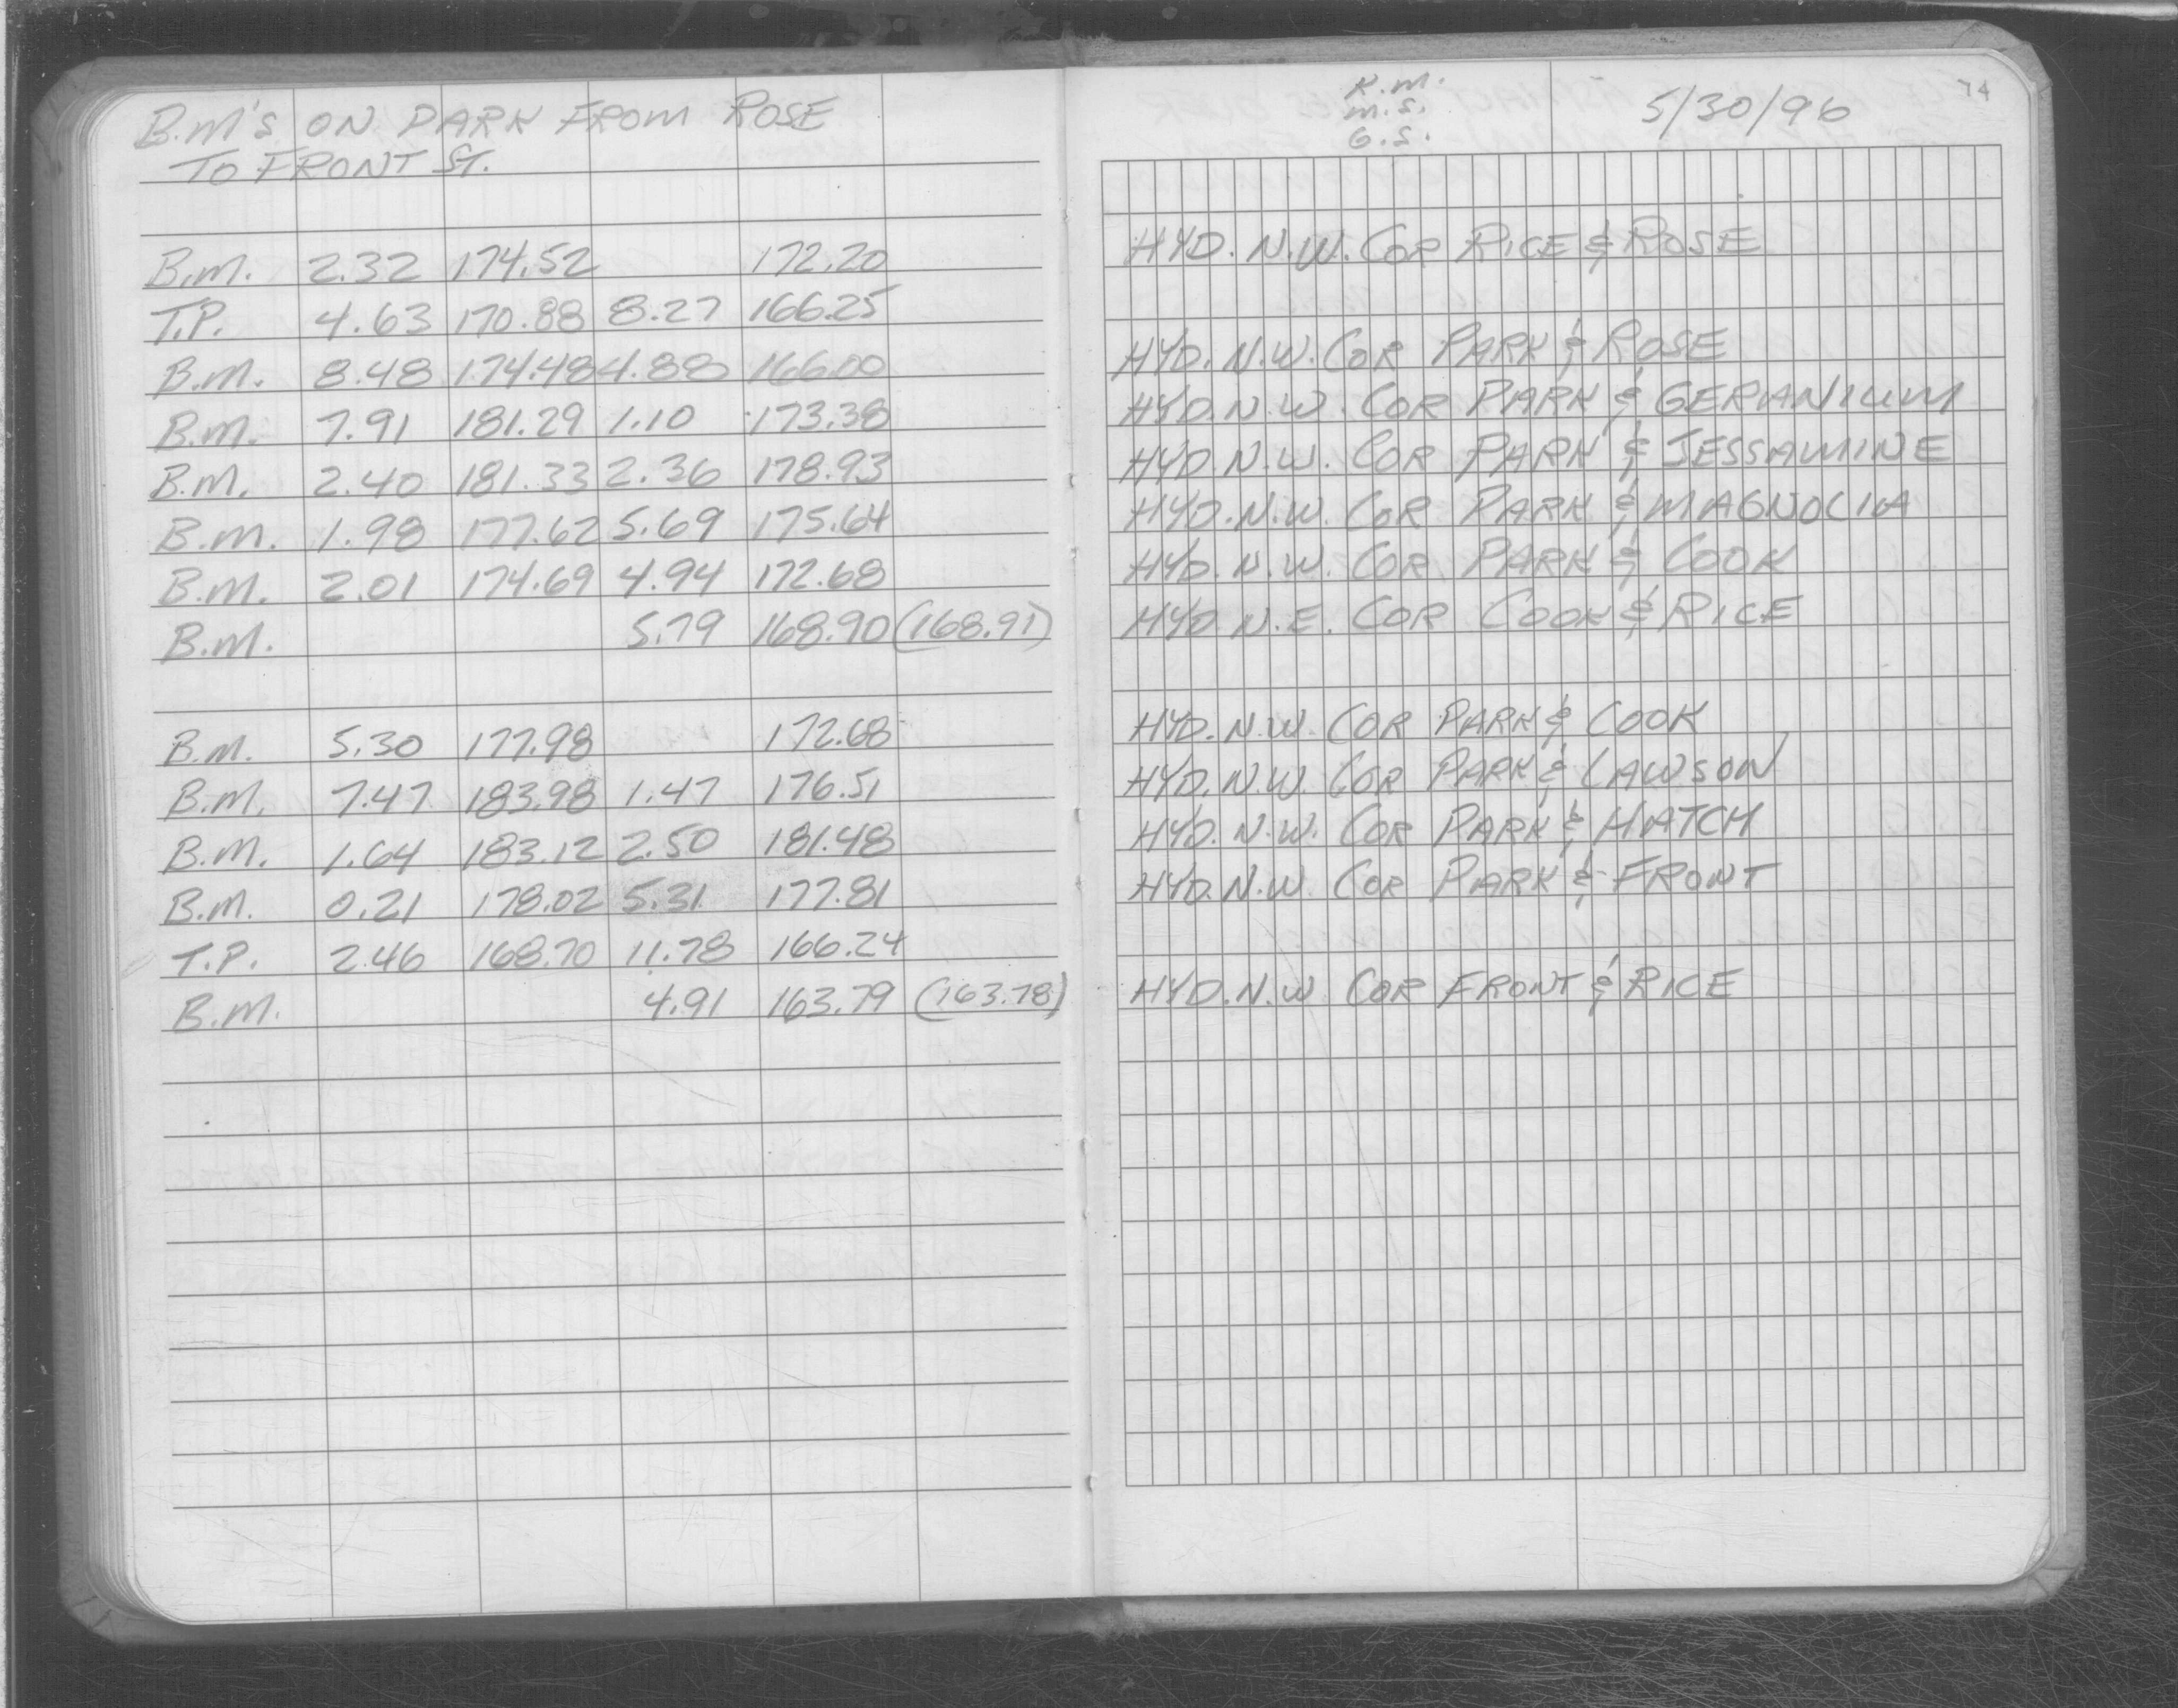 B.M.'S ON PARK FROM ROSE
TO FRONT ST.
B.M. 2.32 174.52 172.20
T.P. 4.63 170.88 8.27 166.25
B.M. 8.48 174.48 4.88 166.00
B.M. 7.91 181.29 1.10 173.38
B.M. 2.40 181.33 2.36 178.93
B.M. 1.98 177.62 5.69 175.64
B.M. 2.01 174.69 4.94 172.68
B.M. 5.79 168.90 (168.91)
B.M. 5.30 177.98 172.68
B.M. 7.47 183.98 1.47 176.51
B.M. 1.64 183.12 2.50 181.48
B.M. 0.21 178.02 5.31 177.81
T.P. 2.46 168.70 11.78 166.24
B.M. 4.91 163.79 (163.78)
K.M.
M.S.
G.S.
5/30/96
74
HYD. N.W. COR RICE & ROSE
HYD. N.W. COR PARK & ROSE
HYD. N.W. COR PARK & GERANIUM
HYD. N.W. COR PARK & JESSAMINE
HYD. N.W. COR PARK & MAGNOLIA
HYD. N.W. COR PARK & COOK
HYD N.E. COR COOK & RICE
HYD. N.W. COR PARK & COOK
HYD. N.W. COR PARK & LAWSON
HYD. N.W. COR PARK & HATCH
HYD. N.W. COR PARK & FRONT
HYD. N.W COR FRONT & RICE